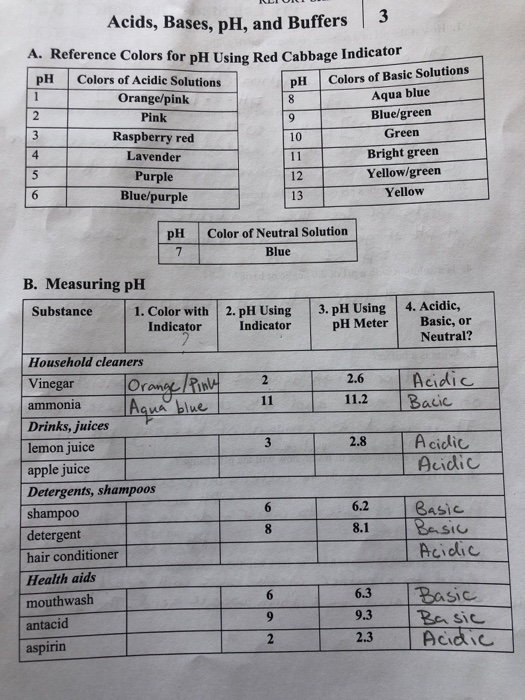 Acids, Bases, pH, and Buffers 3
A. Reference Colors for pH Using Red Cabbage Indicator
pH Colors of Acidic Solutions
1 Orange/pink
2 Pink
3 Raspberry red
4 Lavender
5 Purple
6 Blue/purple
pH Colors of Basic Solutions
8 Aqua blue
9 Blue/green
10 Green
11 Bright green
12 Yellow/green
13 Yellow
pH Color of Neutral Solution
7 Blue
B. Measuring pH
Substance 1. Color with Indicator 2. pH Using Indicator 3. pH Using pH Meter 4. Acidic, Basic, or Neutral?
?
Household cleaners
Vinegar Orange/Pink 2 2.6 Acidic
ammonia Aqua blue 11 11.2 Bacic
Drinks, juices
lemon juice 3 2.8 Acidic
apple juice Acidic
Detergents, shampoos
shampoo 6 6.2 Basic
detergent 8 8.1 Basic
hair conditioner Acidic
Health aids
mouthwash 6 6.3 Basic
antacid 9 9.3 Basic
aspirin 2 2.3 Acidic